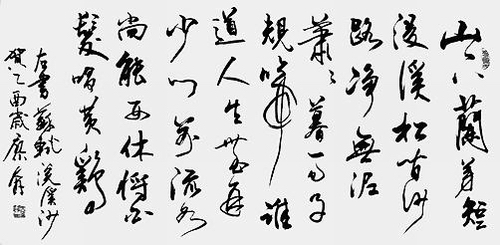 山下蘭芽短
浸溪松間沙
路淨無泥
蕭々暮雨子
規啼誰
道人生無再
少門前流水
尚能西休將白
髮唱黃雞
書蘇軾浣溪沙
乙酉歲